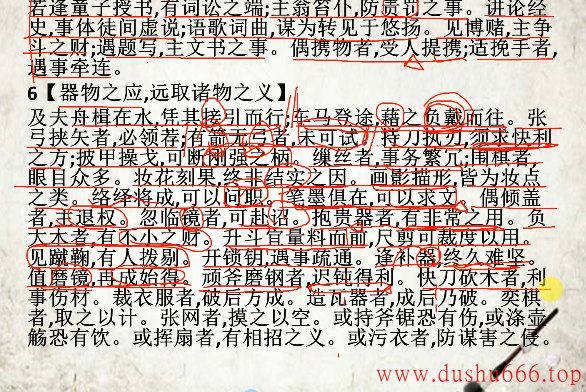 若逢童子授书,有词讼之端;主翁笞仆,防责罚之事。讲论经
史,事体徒间虚说;语歌词曲,谋为转见于悠扬。见博赌,主争
斗之财;遇题写,主文书之事。偶携物者,受人提携;适挽手者,
遇事牵连。
6【器物之应,远取诸物之义】
及夫舟楫在水,凭其接引而行;车马登途,藉之负戴而往。张
弓挟矢者,必领荐;有箭无弓者,未可试。持刀执刃,须求快利
之方;披甲操戈,可断刚强之柄。缫丝者,事务繁冗;围棋者,
眼目众多。妆花刻果,终非结实之因。画影描形,皆为妆点
之类。络绎将成,可以问职。笔墨俱在,可以求文。偶倾盖
者,主退权。忽临镜者,可赴诏。抱贵器者,有非常之用。负
大木者,有不小之财。升斗宜量料而前,尺剪可裁度以用。
见蹴鞠,有人拨剔。开锁钥,遇事疏通。逢补器,终久难坚。
值磨镜,再成始得。顽斧磨钢者,迟钝得利。快刀砍木者,利
事伤材。裁衣服者,破后方成。造瓦器者,成后乃破。奕棋
者,取之以计。张网者,摸之以空。或持斧锯恐有伤,或涤壶
觞恐有饮。或挥扇者,有相招之义。或污衣者,防谋害之侵。
www.dushu666.top